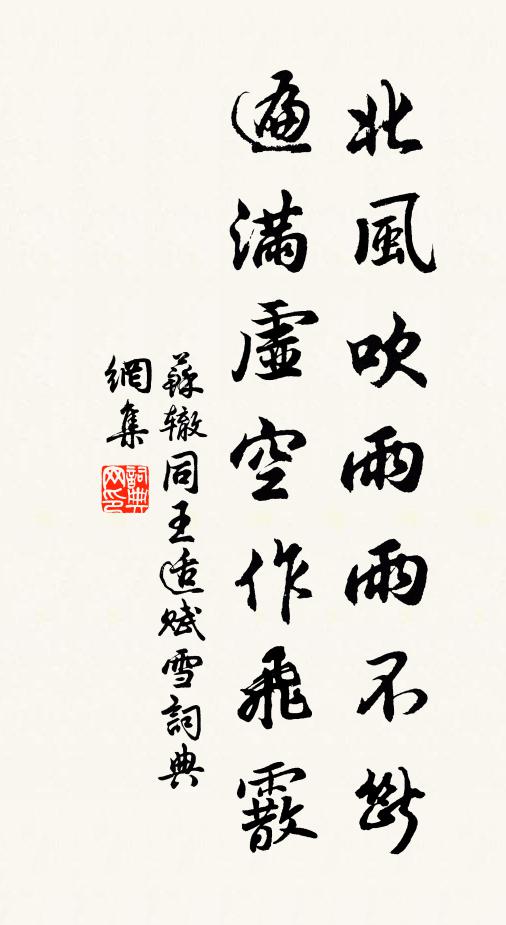 北風吹雨雨不斷
遍滿虛空作飛霰
蘇辙同王适賦雪詞典
網集
詞典網印